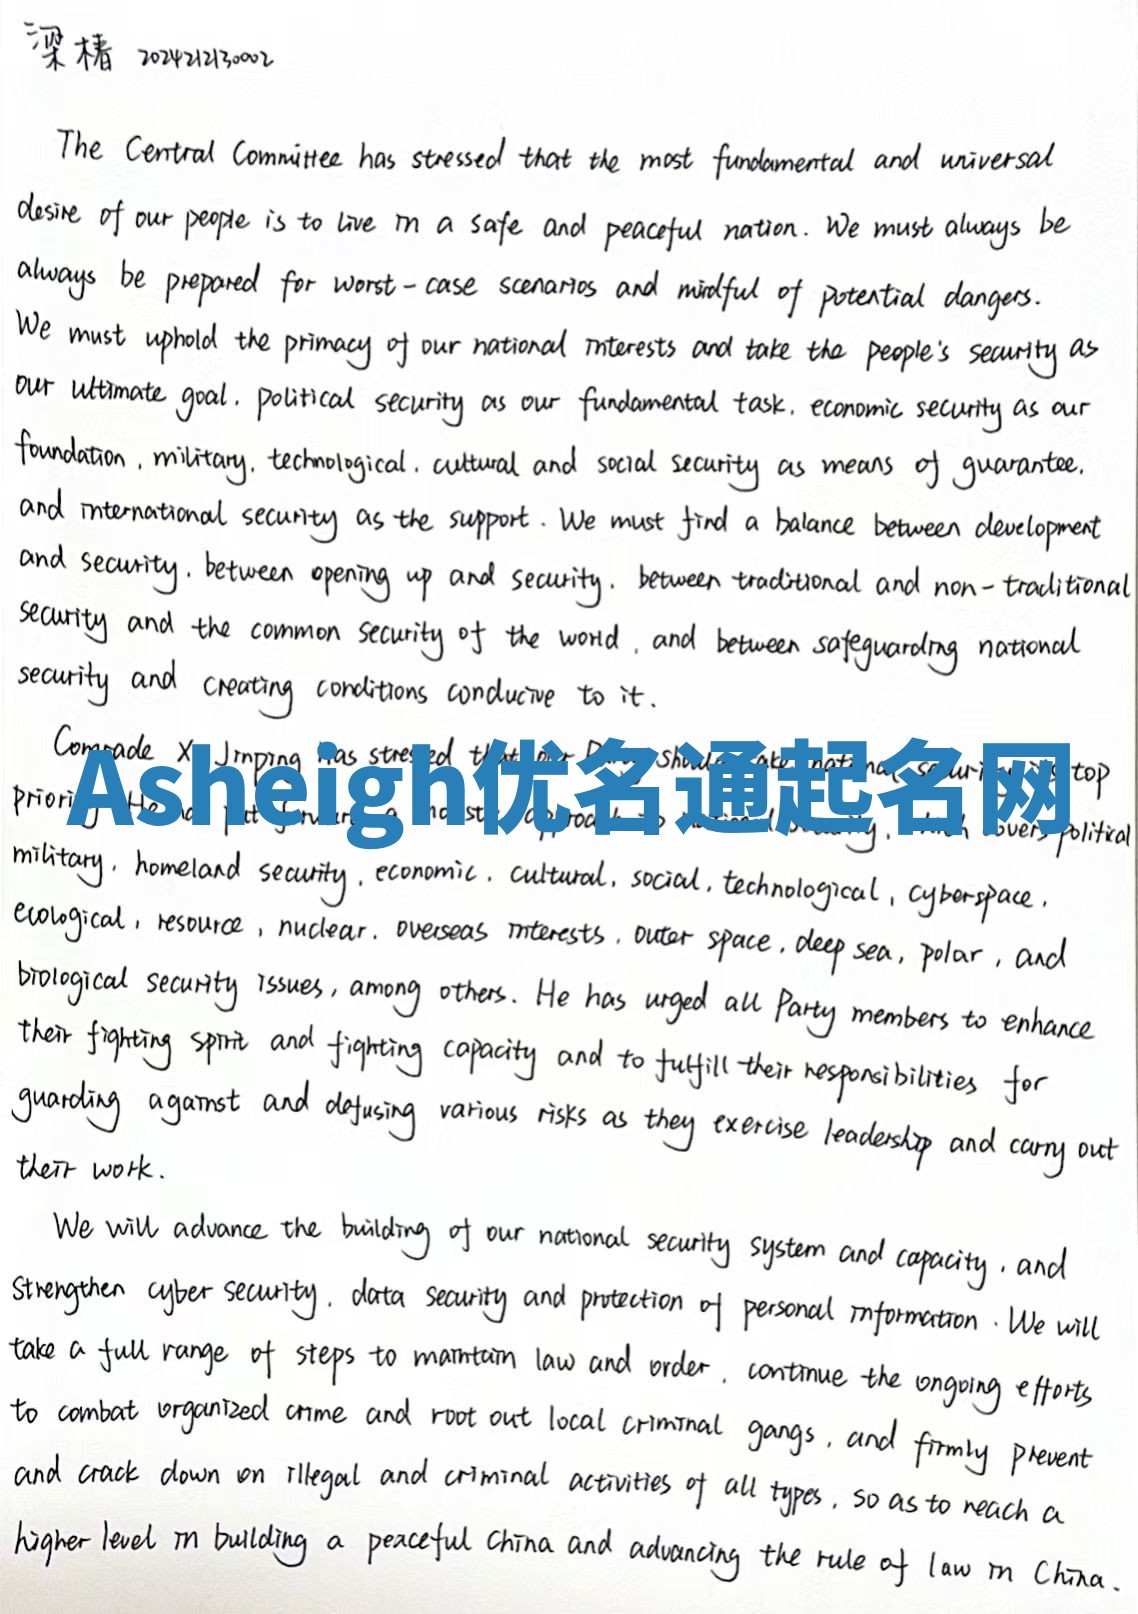 梁椿 2024212130002
The Central Committee has stressed that the most fundamental and universal
desire of our people is to live in a safe and peaceful nation. We must always be
always be prepared for worst-case scenarios and mindful of potential dangers.
We must uphold the primacy of our national interests and take the people's security as
our ultimate goal, political security as our fundamental task, economic security as our
foundation, military, technological, cultural and social security as means of guarantee,
and international security as the support. We must find a balance between development
and security, between opening up and security, between traditional and non-traditional
security and the common security of the world, and between safeguarding national
security and creating conditions conducive to it.
Comrade Xi Jinping has stressed that our Party should national security its top
Asheigh优名通起名网
priority He put forward a approach to national security, which covers political
military, homeland security, economic, cultural, social, technological, cyberspace,
ecological, resource, nuclear, overseas interests, outer space, deep sea, polar, and
biological security issues, among others. He has urged all Party members to enhance
their fighting spirit and fighting capacity and to fulfill their responsibilities for
guarding against and defusing various risks as they exercise leadership and carry out
their work.
We will advance the building of our national security system and capacity, and
strengthen cyber security, data security and protection of personal information. We will
take a full range of steps to maintain law and order, continue the ongoing efforts
to combat organized crime and root out local criminal gangs, and firmly prevent
and crack down on illegal and criminal activities of all types, so as to reach a
higher level in building a peaceful China and advancing the rule of law in China.